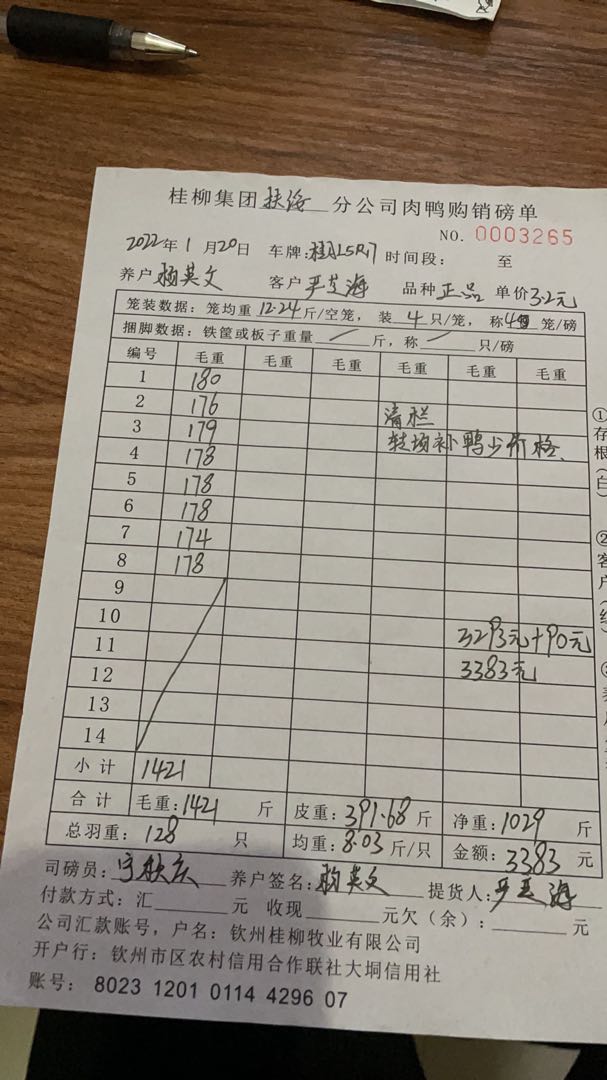 桂柳集团扶海分公司肉鸭购销磅单
NO. 0003265
2022年1月20日 车牌: 时间段: 至
养户 杨英文 客户 品种 正品 单价3.2元
笼装数据: 笼均重 12.24 斤/空笼, 装 4 只/笼, 称 4 笼/磅
捆脚数据: 铁筐或板子重量 / 斤, 称 / 只/磅
编号 毛重 毛重 毛重 毛重 毛重 毛重
1 180
2 176 清栏
3 179 转场补鸭少价格、
4 178
5 178
6 178
7 174
8 178
9
10
11 3293元+90元
12 3383元
13
14
小计 1421
合计 毛重: 1421 斤 皮重: 391.68 斤 净重: 1029 斤
总羽重: 128 只 均重: 8.03 斤/只 金额: 3383 元
司磅员: 养户签名: 杨英文 提货人:
付款方式: 汇 元 收现 元欠(余): 元
公司汇款账号, 户名: 钦州桂柳牧业有限公司
开户行: 钦州市区农村信用合作联社大垌信用社
账号: 8023 1201 0114 4296 07
①存根(白)
②客户(红)